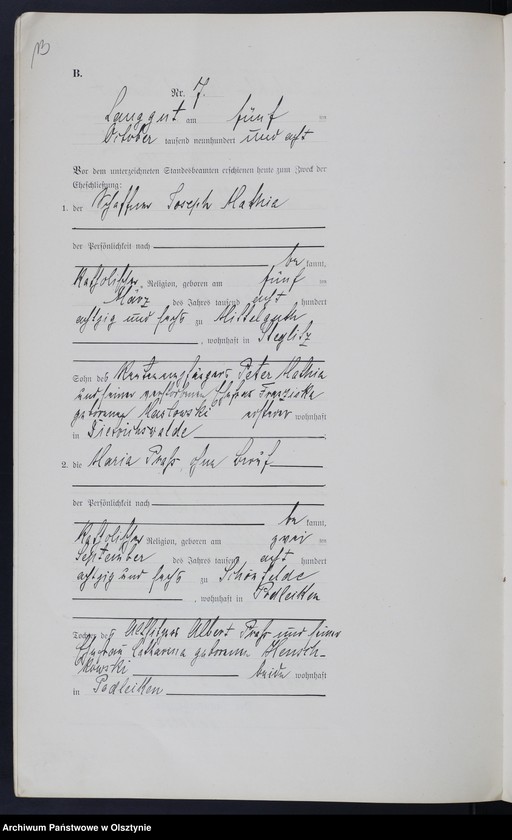 B.
Nr. 7.
Langgut am fünf ten
October tausend neunhundert und acht
Vor dem unterzeichneten Standesbeamten erschienen heute zum Zweck der
Eheschließung:
1. der Schaffner Joseph Mathia
der Persönlichkeit nach
be kannt,
katholischer Religion, geboren am fünf ten
März des Jahres tausend acht hundert
achtzig und sechs zu Mittelguth
, wohnhaft in Steglitz
Sohn des Rentenempfängers Peter Mathia
und seiner verstorbenen Ehefrau Franziska
geborenen Maslowski ersterer wohnhaft
in Dietrichswalde
2. die Maria Prass, ohne Beruf
der Persönlichkeit nach
be kannt,
katholischer Religion, geboren am zwei ten
September des Jahres tausend acht hundert
achtzig und sechs zu Schönfelde
, wohnhaft in Podleiken
Tochter des Altsitzers Albert Prass und seiner
Ehefrau Catharina geborenen
beide wohnhaft
in Podleiken
Archiwum Państwowe w Olsztynie